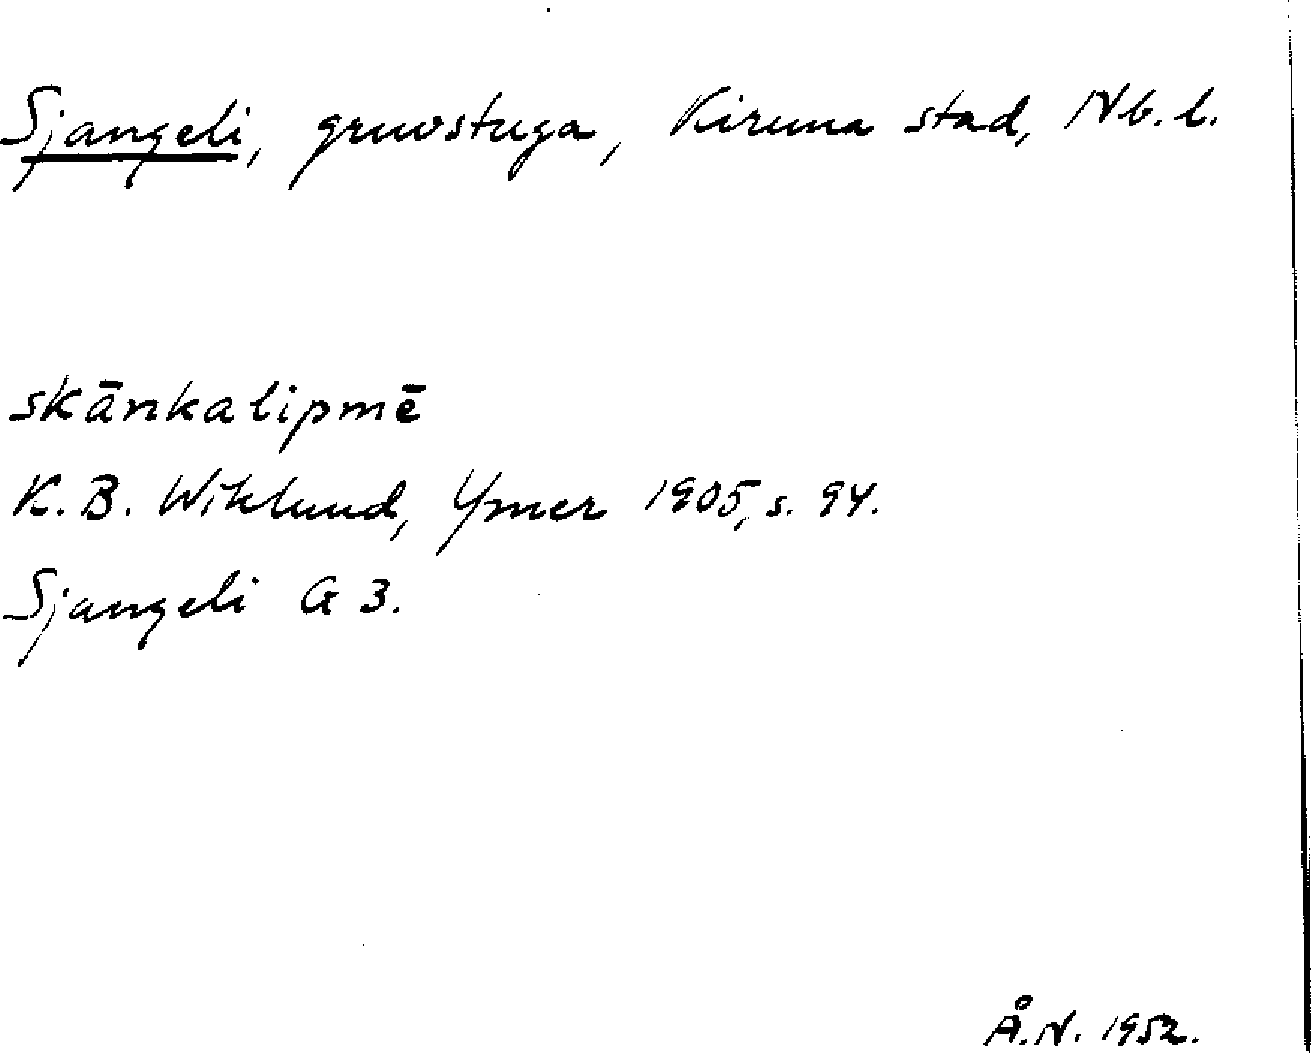 Sjangeli, gruvstuga, Kiruna stad, Nb. l.
skānkalipmē
K. B. Wiklund, Ymer 1905, s. 94.
Sjangeli G 3.
Å. N. 1952.